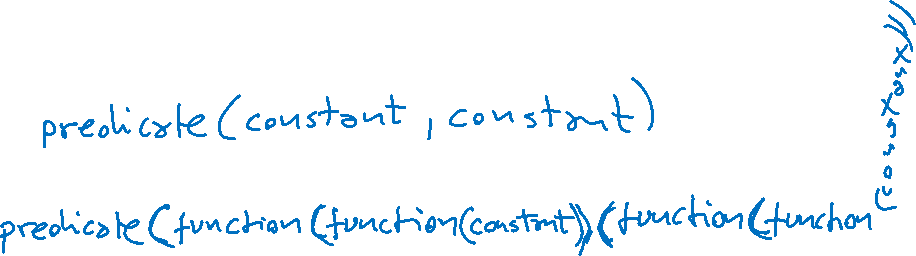 predicate(constant, constant)
predicate(function(function(constant))(function(function(constant)))